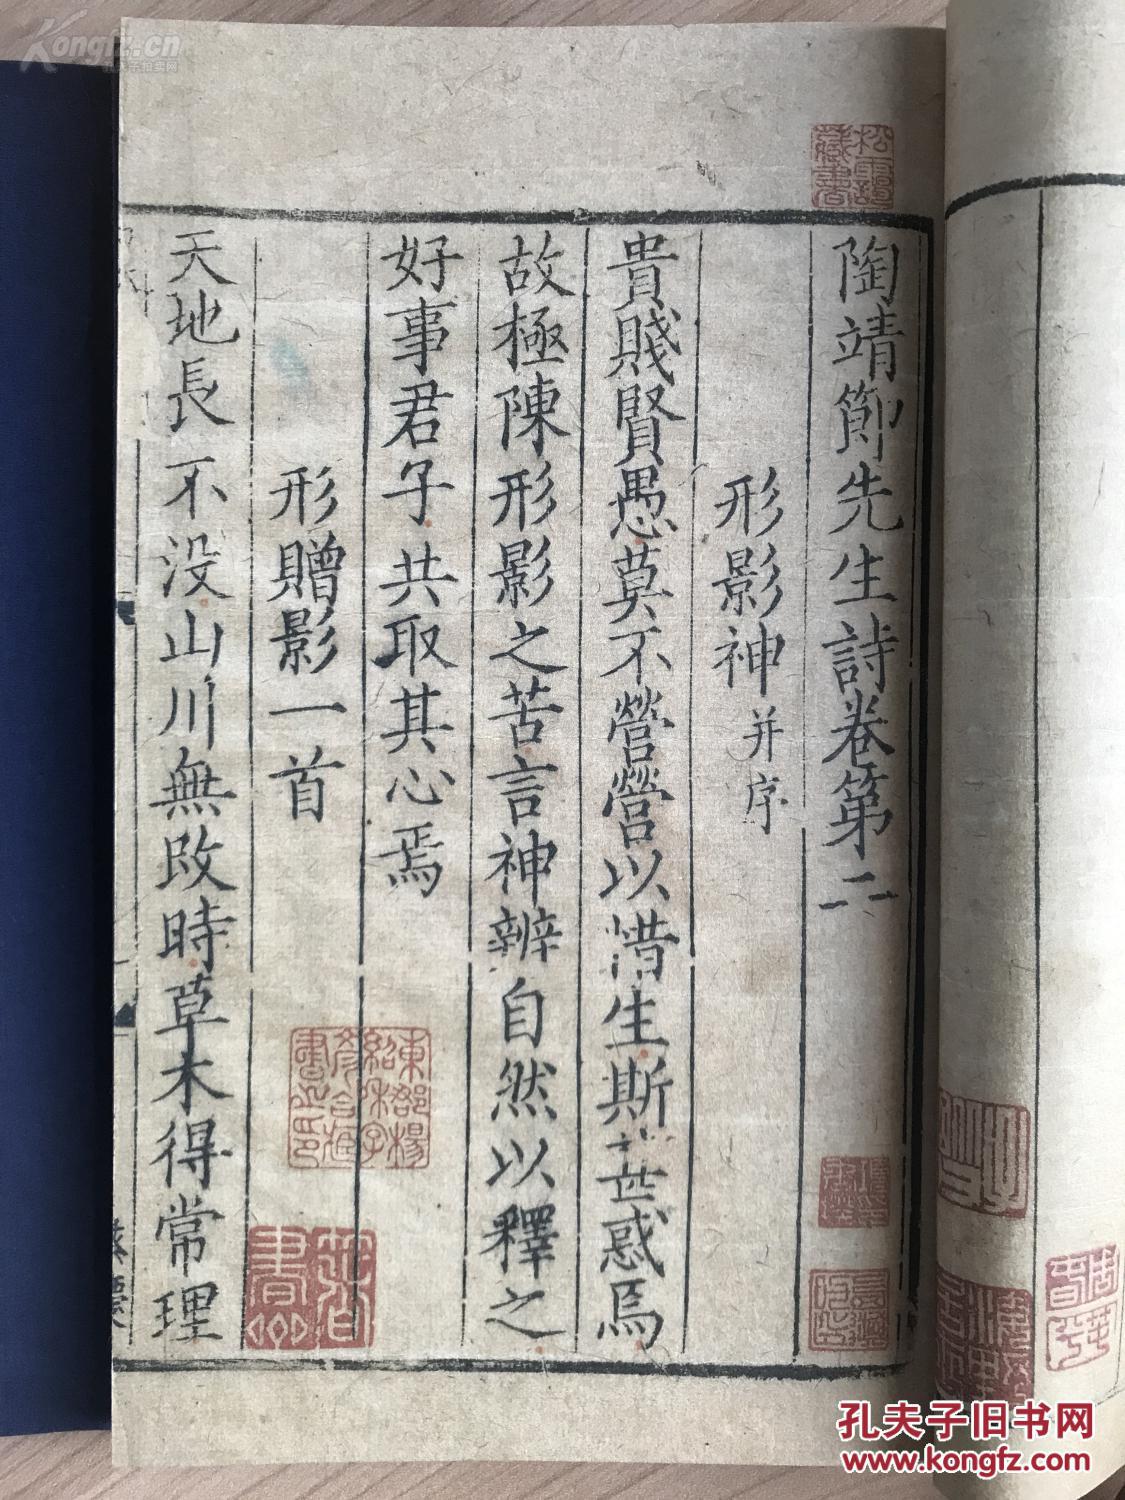 陶靖節先生詩卷第二
形影神并序
貴賤賢愚莫不營營以惜生斯甚惑焉
故極陳形影之苦言神辨自然以釋之
好事君子共取其心焉
形贈影一首
天地長不没山川無改時草木得常理
松雪讀
藏書
Kongfz.cn
孔夫子拍卖网
孔夫子旧书网
www.kongfz.com